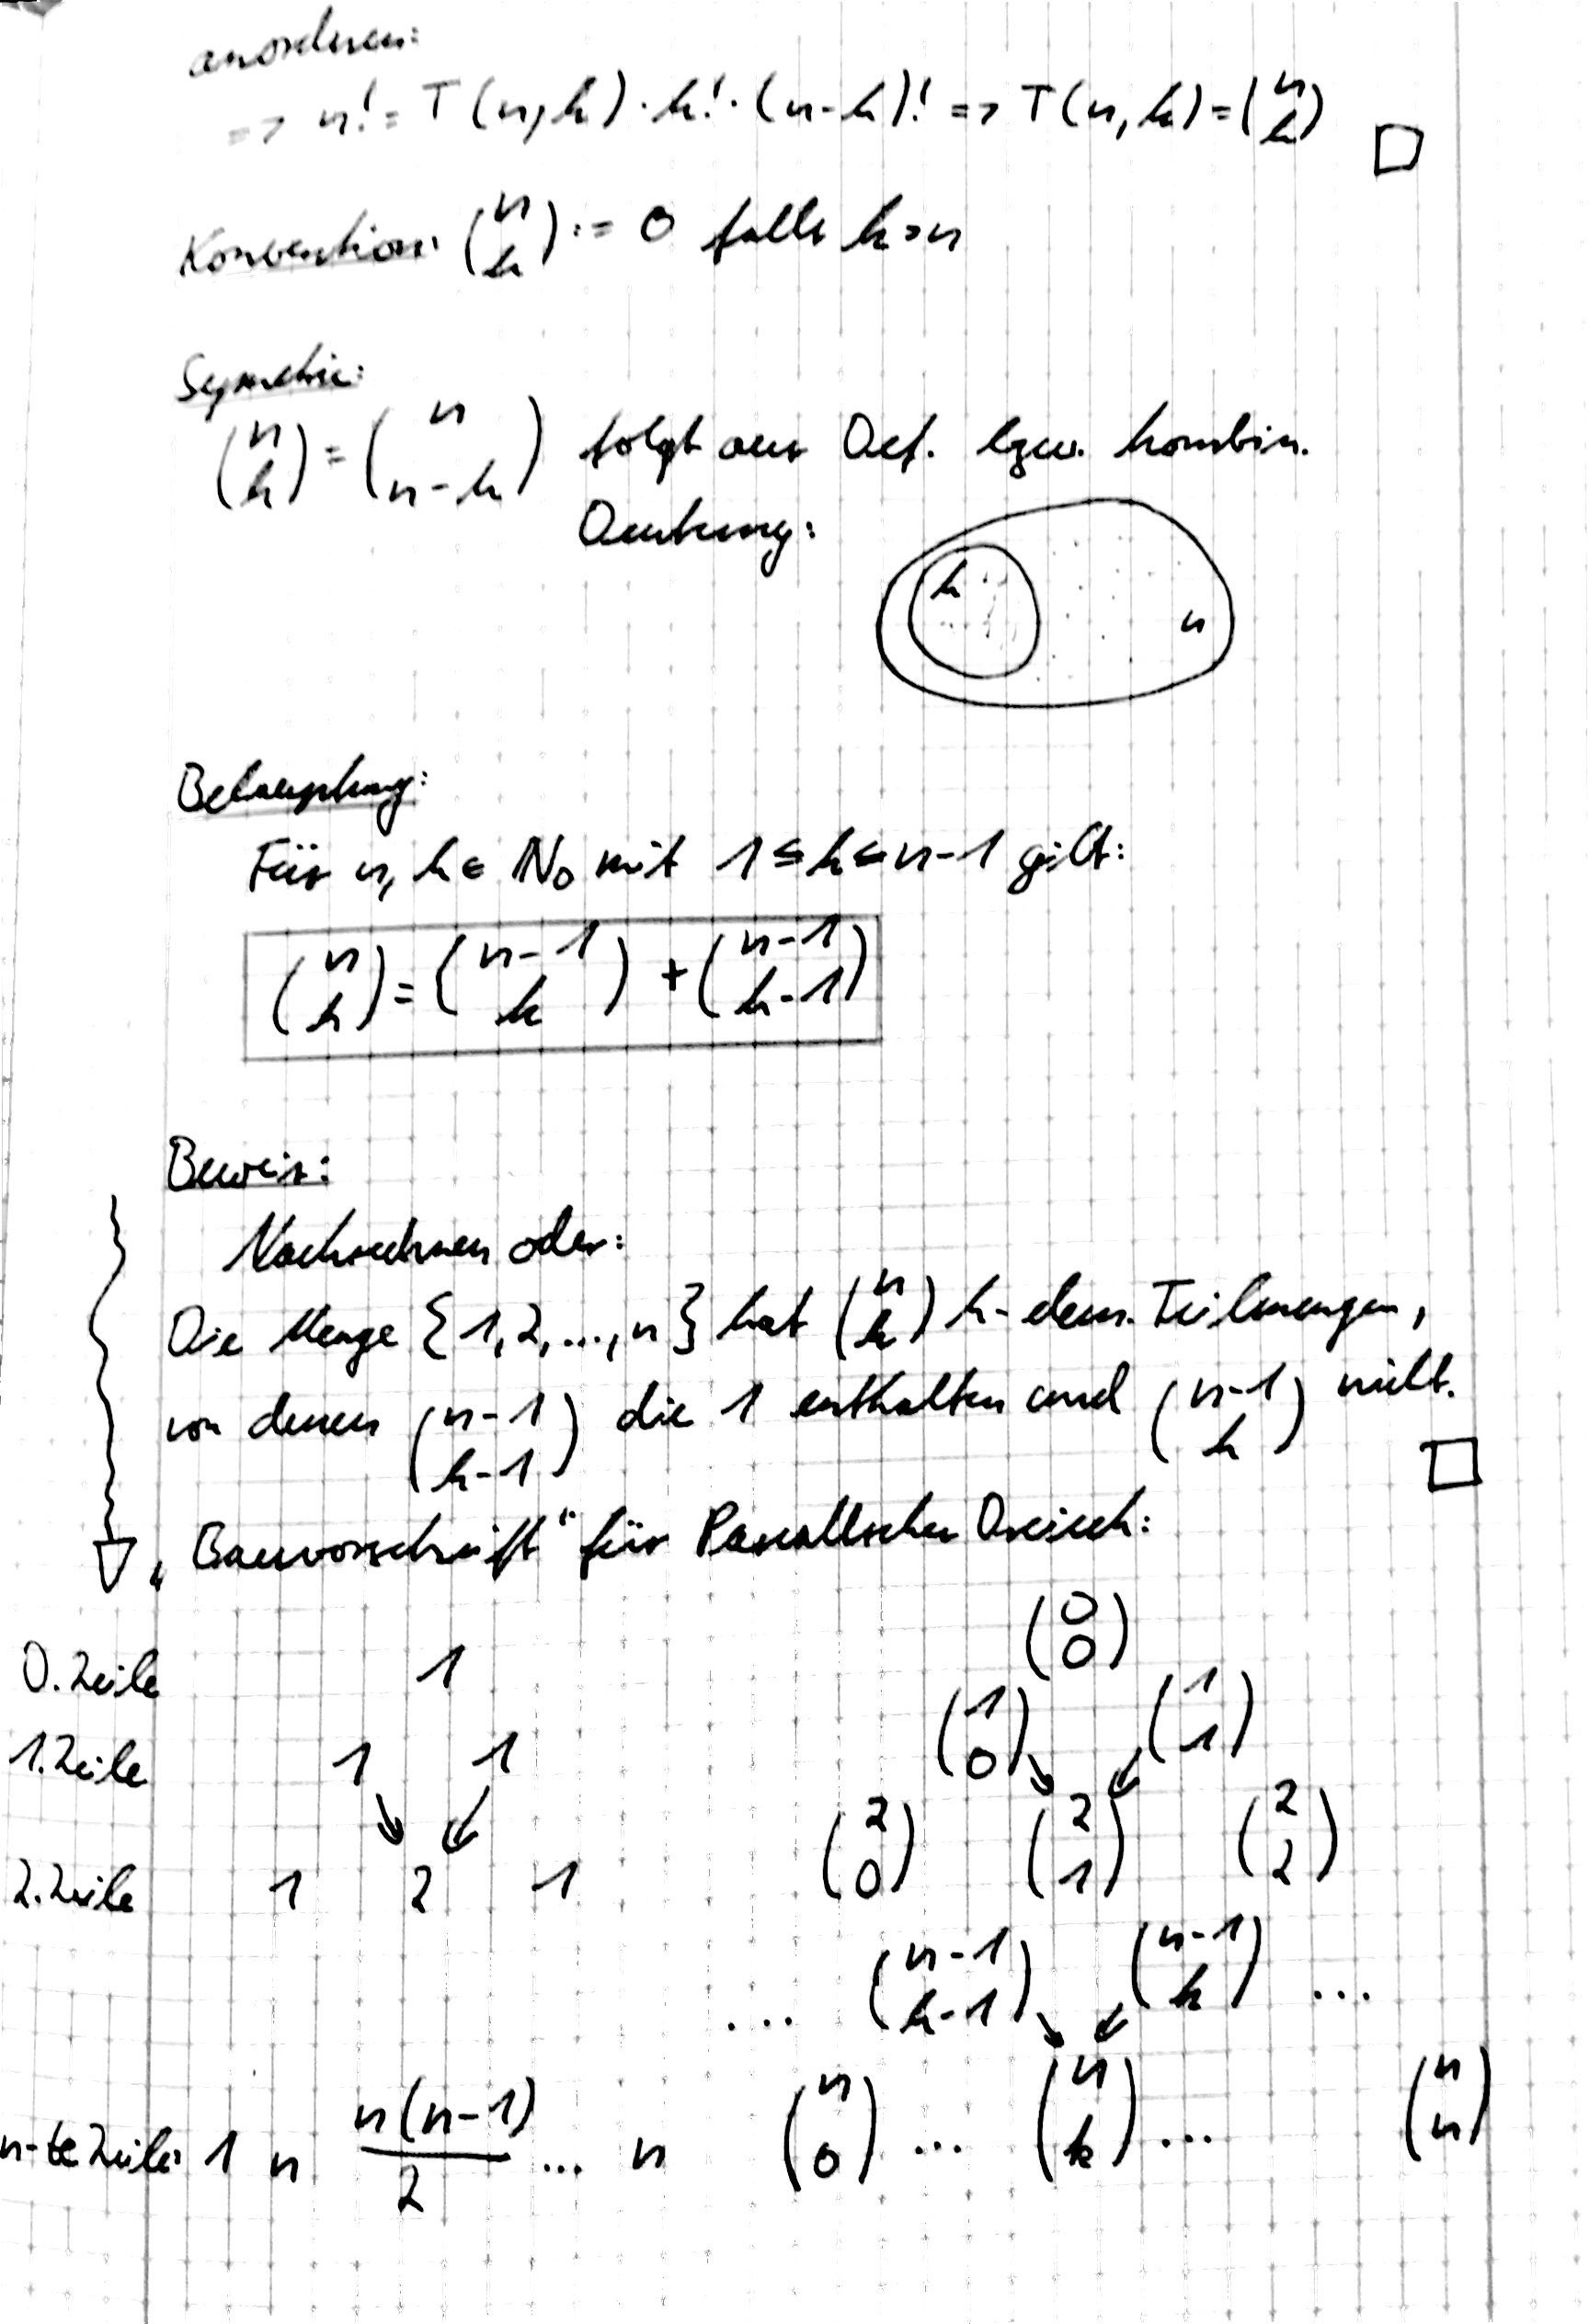 anordnen:
=> n! = T(n,k) · k! · (n-k)! => T(n,k) = (n k) □
Konvention: (n k) := 0 falls k>n
Symetrie:
(n k) = (n n-k) folgt aus Def. bzw. kombin.
Deutung:
k
n
Behauptung:
Für n, k ∈ N₀ mit 1 ≤ k ≤ n-1 gilt:
(n k) = (n-1 k) + (n-1 k-1)
Beweis:
Nachrechnen oder:
Die Menge {1,2,...,n} hat (n k) k-elem. Teilmengen,
von denen (n-1 k-1) die 1 enthalten und (n-1 k) nicht. □
„Bauvorschrift“ für Pascallsches Dreieck:
0. Zeile 1 (0 0)
1. Zeile 1 1 (1 0) (1 1)
2. Zeile 1 2 1 (2 0) (2 1) (2 2)
... (n-1 k-1) (n-1 k) ...
n-te Zeile: 1 n n(n-1)/2 ... n (n 0) ... (n k) ... (n n)